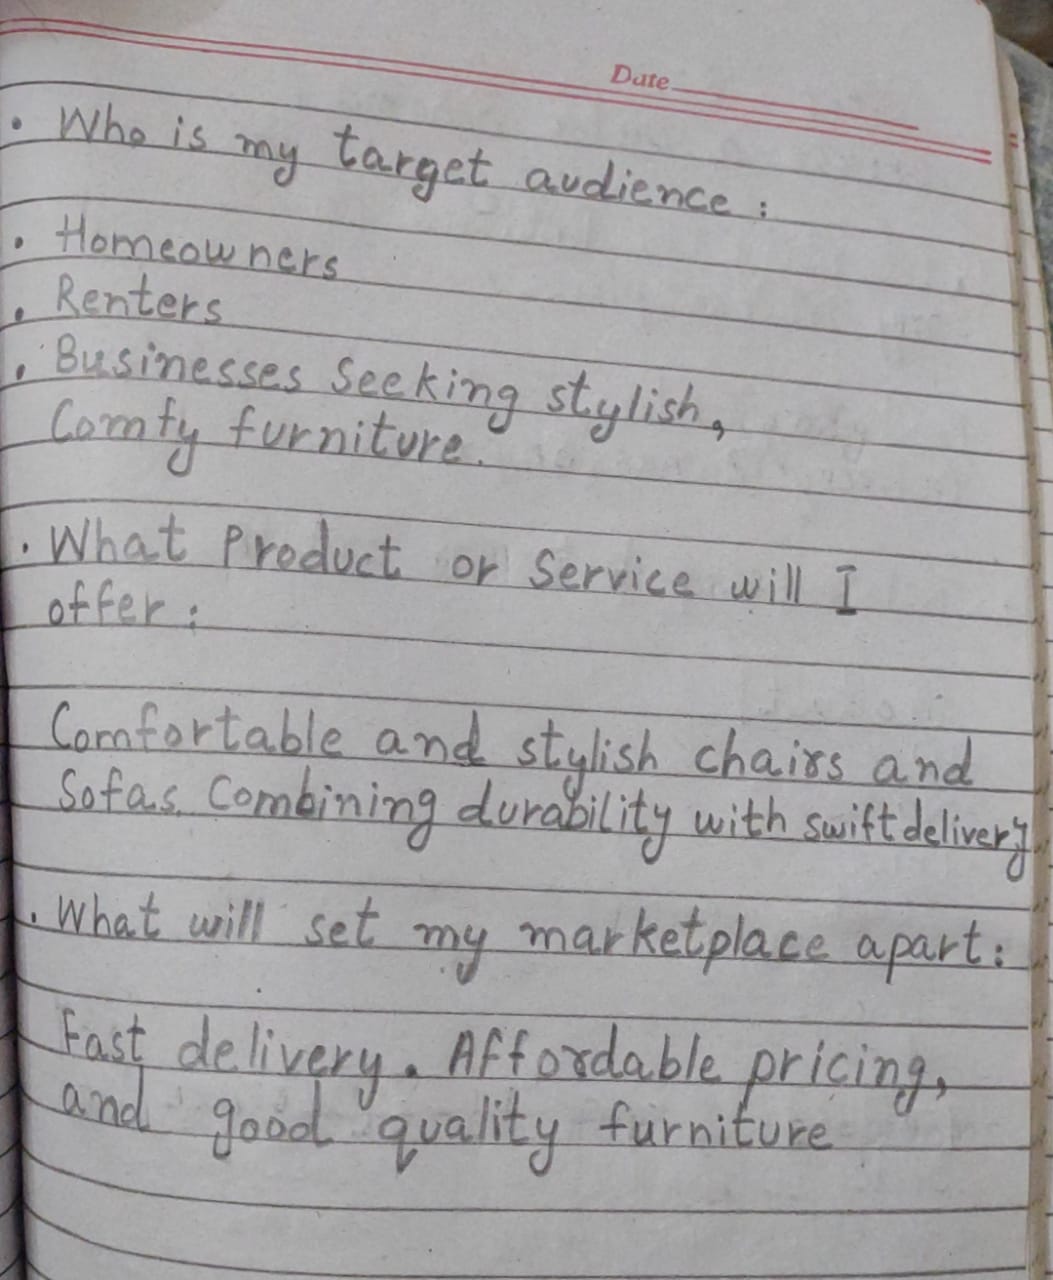 Date
• Who is my target audience :
• Homeowners
• Renters
• Businesses Seeking stylish,
Comfy furniture.
• What Product or Service will I
offer :
Comfortable and stylish chairs and
Sofas. Combining durability with swift delivery
• What will set my marketplace apart :
Fast delivery. Affordable pricing,
and good quality furniture